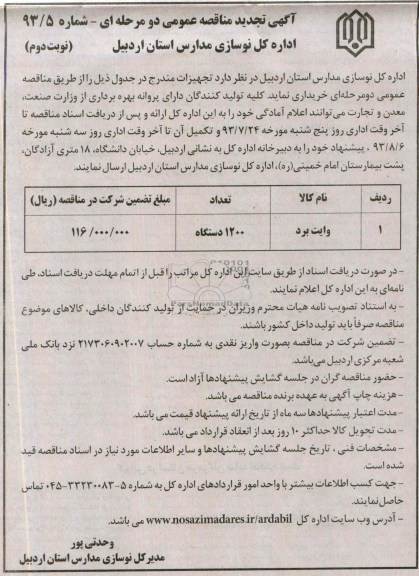 آگهی تجدید مناقصه عمومی دو مرحله ای - شماره ۹۳/۵
اداره کل نوسازی مدارس استان اردبیل (نوبت دوم)
اداره کل نوسازی مدارس استان اردبیل در نظر دارد تجهیزات مندرج در جدول ذیل را از طریق مناقصه
عمومی دومرحله‌ای خریداری نماید. کلیه تولید کنندگان دارای پروانه بهره برداری از وزارت صنعت،
معدن و تجارت می‌توانند اعلام آمادگی خود را به این اداره کل ارائه و پس از دریافت اسناد مناقصه تا
آخر وقت اداری روز پنج شنبه مورخه ۹۳/۷/۲۴ و تکمیل آن تا آخر وقت اداری روز سه شنبه مورخه
۹۳/۸/۶ ، پیشنهاد خود را به دبیرخانه اداره کل به نشانی اردبیل، خیابان دانشگاه، ۱۸ متری آزادگان،
پشت بیمارستان امام خمینی(ره)، اداره کل نوسازی مدارس استان اردبیل ارسال نمایند.
ردیف نام کالا تعداد مبلغ تضمین شرکت در مناقصه (ریال)
۱ وایت برد ۱۲۰۰ دستگاه ۱۱۶/۰۰۰/۰۰۰
- در صورت دریافت اسناد از طریق سایت این اداره کل مراتب را قبل از اتمام مهلت دریافت اسناد، طی
نامه‌ای به این اداره کل اعلام نمایند.
- به استناد تصویب نامه هیات محترم وزیران در حمایت از تولید کنندگان داخلی، کالاهای موضوع
مناقصه صرفاً باید تولید داخل کشور باشند.
- تضمین شرکت در مناقصه بصورت واریز نقدی به شماره حساب ۲۱۷۳۰۶۰۹۰۲۰۰۷ نزد بانک ملی
شعبه مرکزی اردبیل می‌باشد.
- حضور مناقصه گران در جلسه گشایش پیشنهادها آزاد است.
- هزینه چاپ آگهی به عهده برنده مناقصه می باشد.
- مدت اعتبار پیشنهادها سه ماه از تاریخ ارائه پیشنهاد قیمت می باشد.
- مدت تحویل کالا حداکثر ۱۰ روز بعد از انعقاد قرارداد می باشد.
- مشخصات فنی ، تاریخ جلسه گشایش پیشنهادها و سایر اطلاعات مورد نیاز در اسناد مناقصه قید
شده است.
- جهت کسب اطلاعات بیشتر با واحد امور قراردادهای اداره کل به شماره ۵-۳۳۲۳۰۰۸۳-۰۴۵ تماس
حاصل نمایند.
- آدرس وب سایت اداره کل www.nosazimadares.ir/ardabil می باشد.
وحدتی پور
مدیرکل نوسازی مدارس استان اردبیل